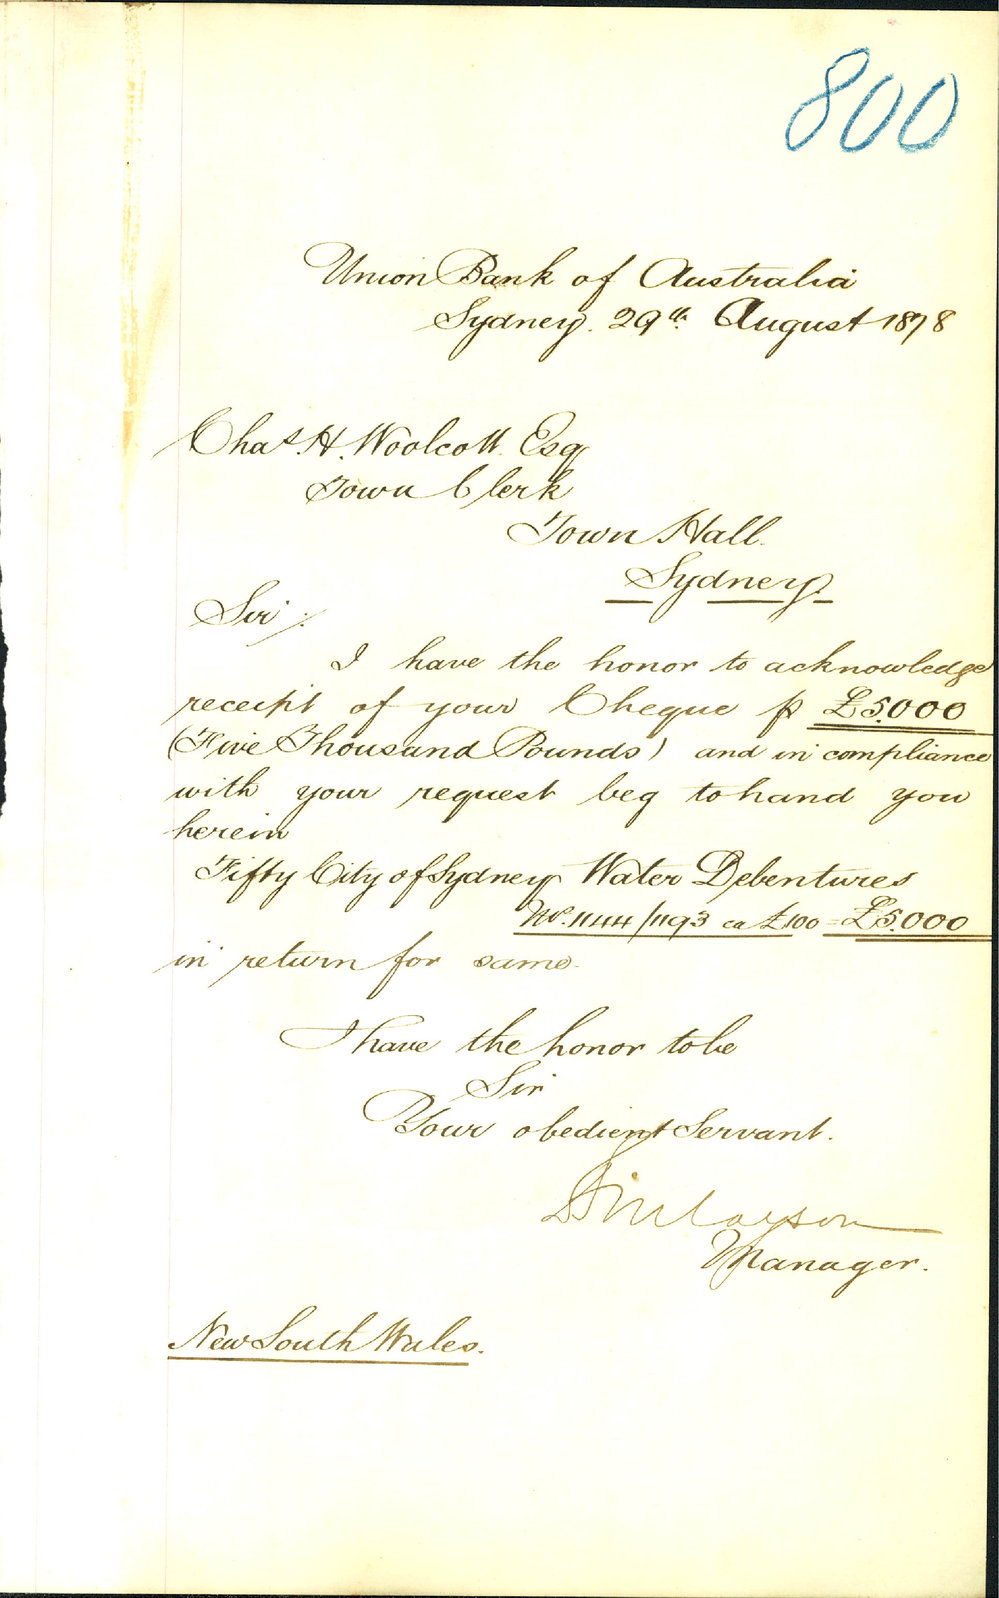 800
Union Bank of Australia
Sydney. 29th. August 1878
Chas. H. Woolcott. Esq
Town Clerk
Town Hall.
Sydney.
Sir/.
I have the honor to acknowledge
receipt of your Cheque p £5.000
(Five Thousand Pounds) and in compliance
with your request beg to hand you
herein
Fifty City of Sydney Water Debentures
No. 1144/1193 ea £100 = £5.000
in return for same.
I have the honor to be
Sir
Your obedient Servant.
Finlayson
Manager.
New South Wales.